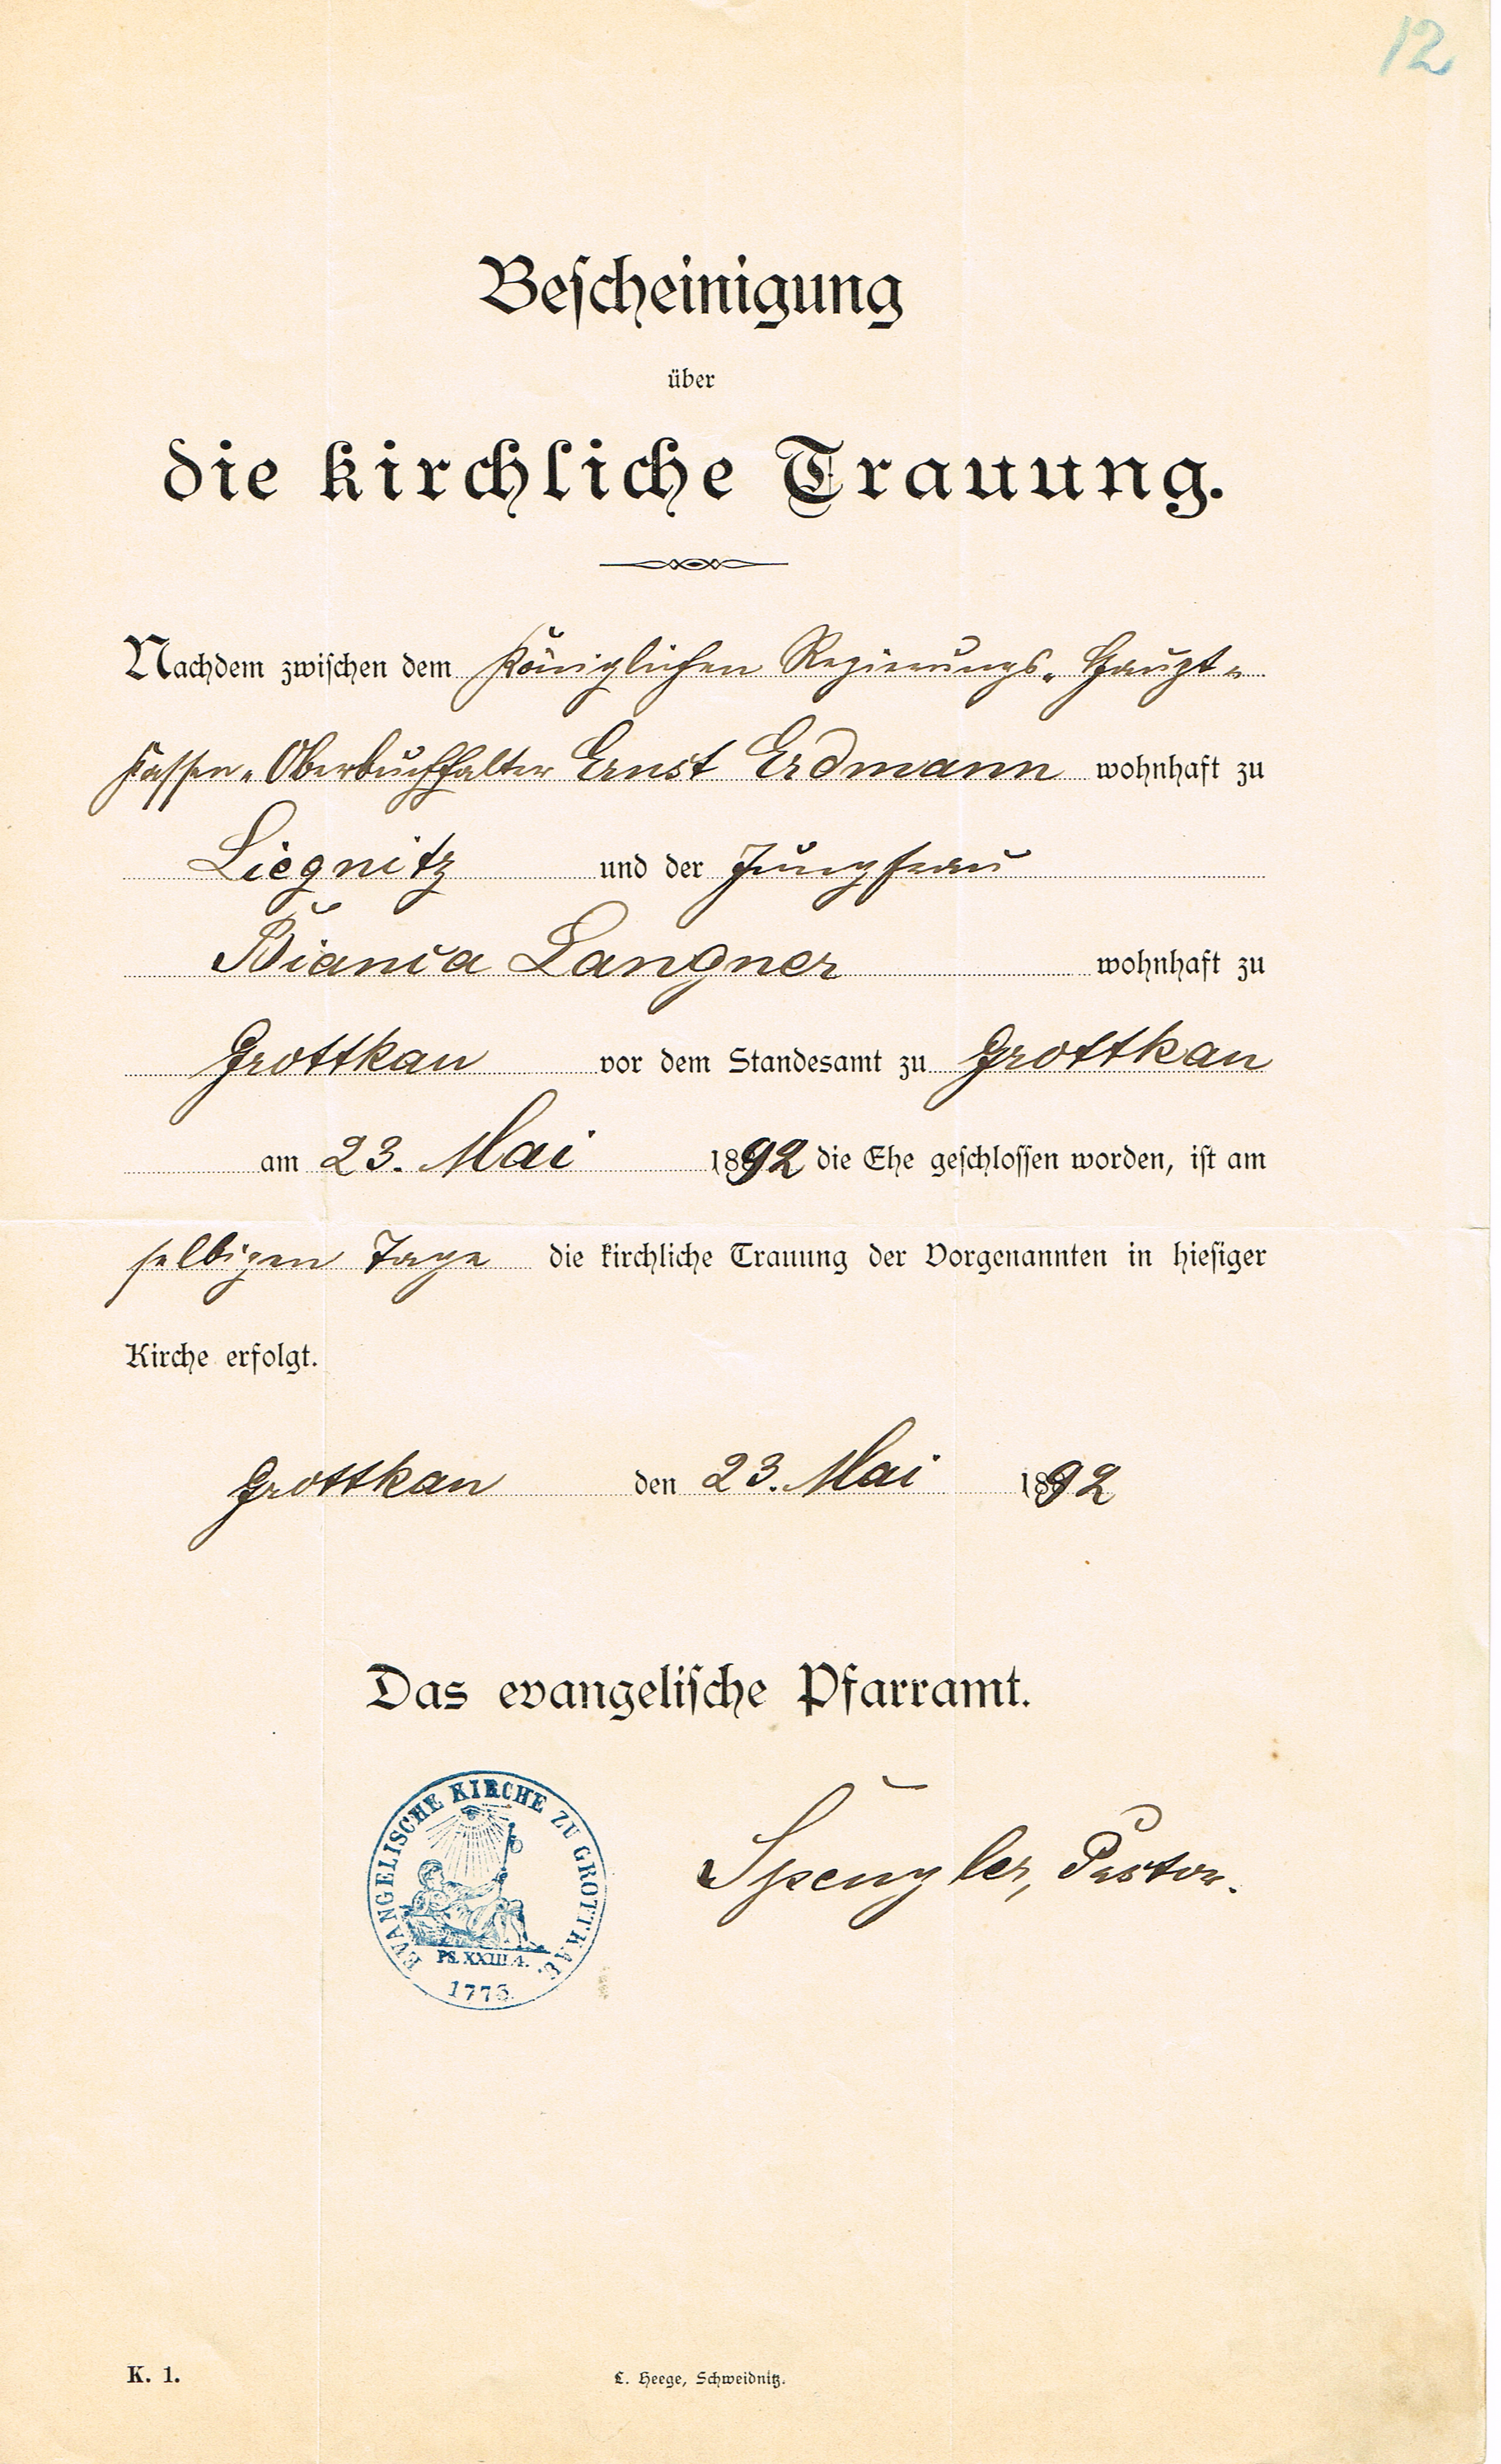 12
Bescheinigung
über
die kirchliche Trauung.
Nachdem zwischen dem Königlichen Regierungs-Haupt-
Kassen-Oberbuchhalter Ernst Erdmann wohnhaft zu
Liegnitz und der Jungfrau
Bianca Langner wohnhaft zu
Grottkau vor dem Standesamt zu Grottkau
am 23. Mai 1892 die Ehe geschlossen worden, ist am
selbigen Tage die kirchliche Trauung der Vorgenannten in hiesiger
Kirche erfolgt.
Grottkau den 23. Mai 1892
Das evangelische Pfarramt.
EVANGELISCHE KIRCHE ZU GROTTKAU.
PS. XXIII.4.
1775.
Spengler, Pastor.
K. 1.
L. Heege, Schweidnitz.